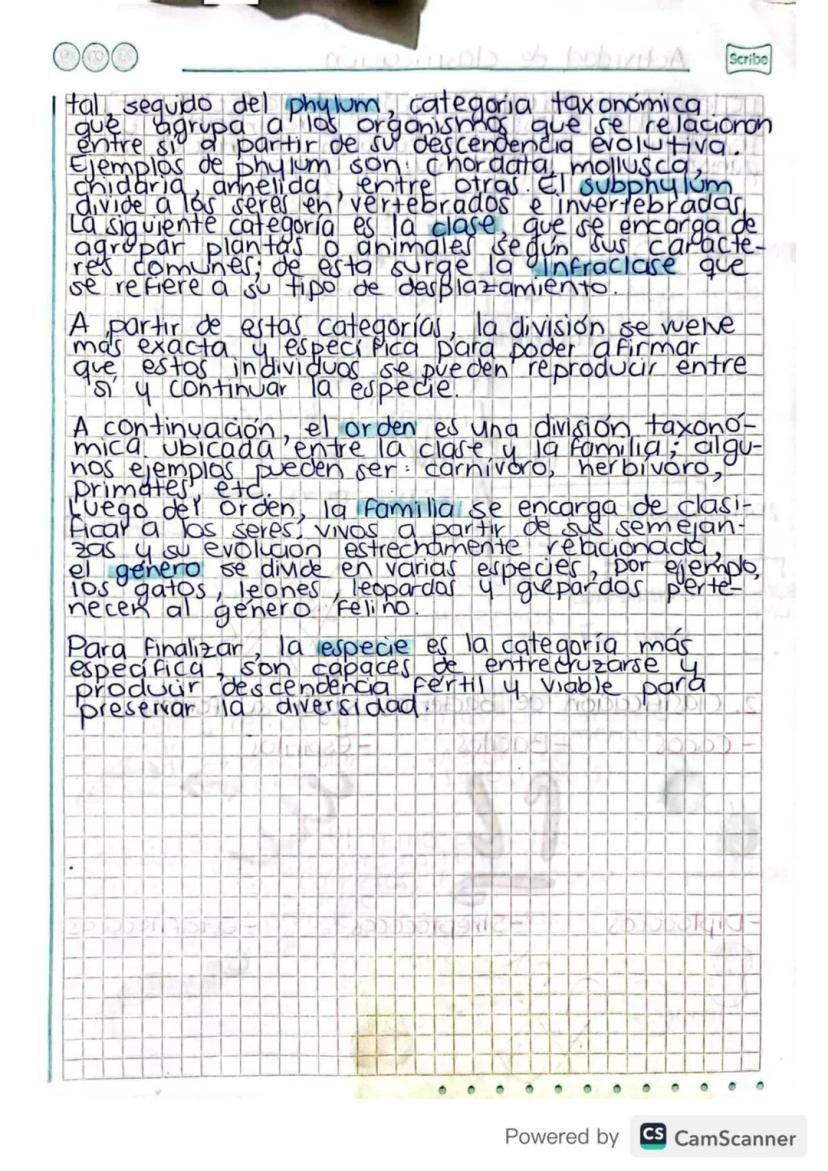 Scribe
tal, seguido del phylum, categoria taxonómica
que agrupa a los organismos que se relacionan
entre si a partir de su descendencia evolutiva.
Ejemplos de phylum son: chordata, mollusca,
chidaria, annelida, entre otras. El subphylum
divide a los seres en vertebrados e invertebrados.
La siguiente categoría es la clase, que se encarga de
agrupar plantas o animales según sus caracte-
res comunes; de esta surge la infraclase que
se refiere a su tipo de desplazamiento.
A partir de estas categorías, la división se vuelve
más exacta y específica para poder afirmar
que estos individuos se pueden reproducir entre
sí y continuar la especie.
A continuación, el orden es una división taxonó-
mica ubicada entre la clase y la familia; algu-
nos ejemplos pueden ser: carnívoro, herbívoro,
primates, etc.
Luego del orden, la familia se encarga de clasi-
ficar a los seres vivos a partir de sus semejan-
zas y su evolución estrechamente relacionada,
el género se divide en varias especies, por ejemplo,
los gatos, leones, leopardos y guepardos perte-
necen al género Felino.
Para finalizar, la especie es la categoría más
específica, son capaces de entrecruzarse y
producir descendencia fértil y viable para
preservar la diversidad.
Powered by CS CamScanner